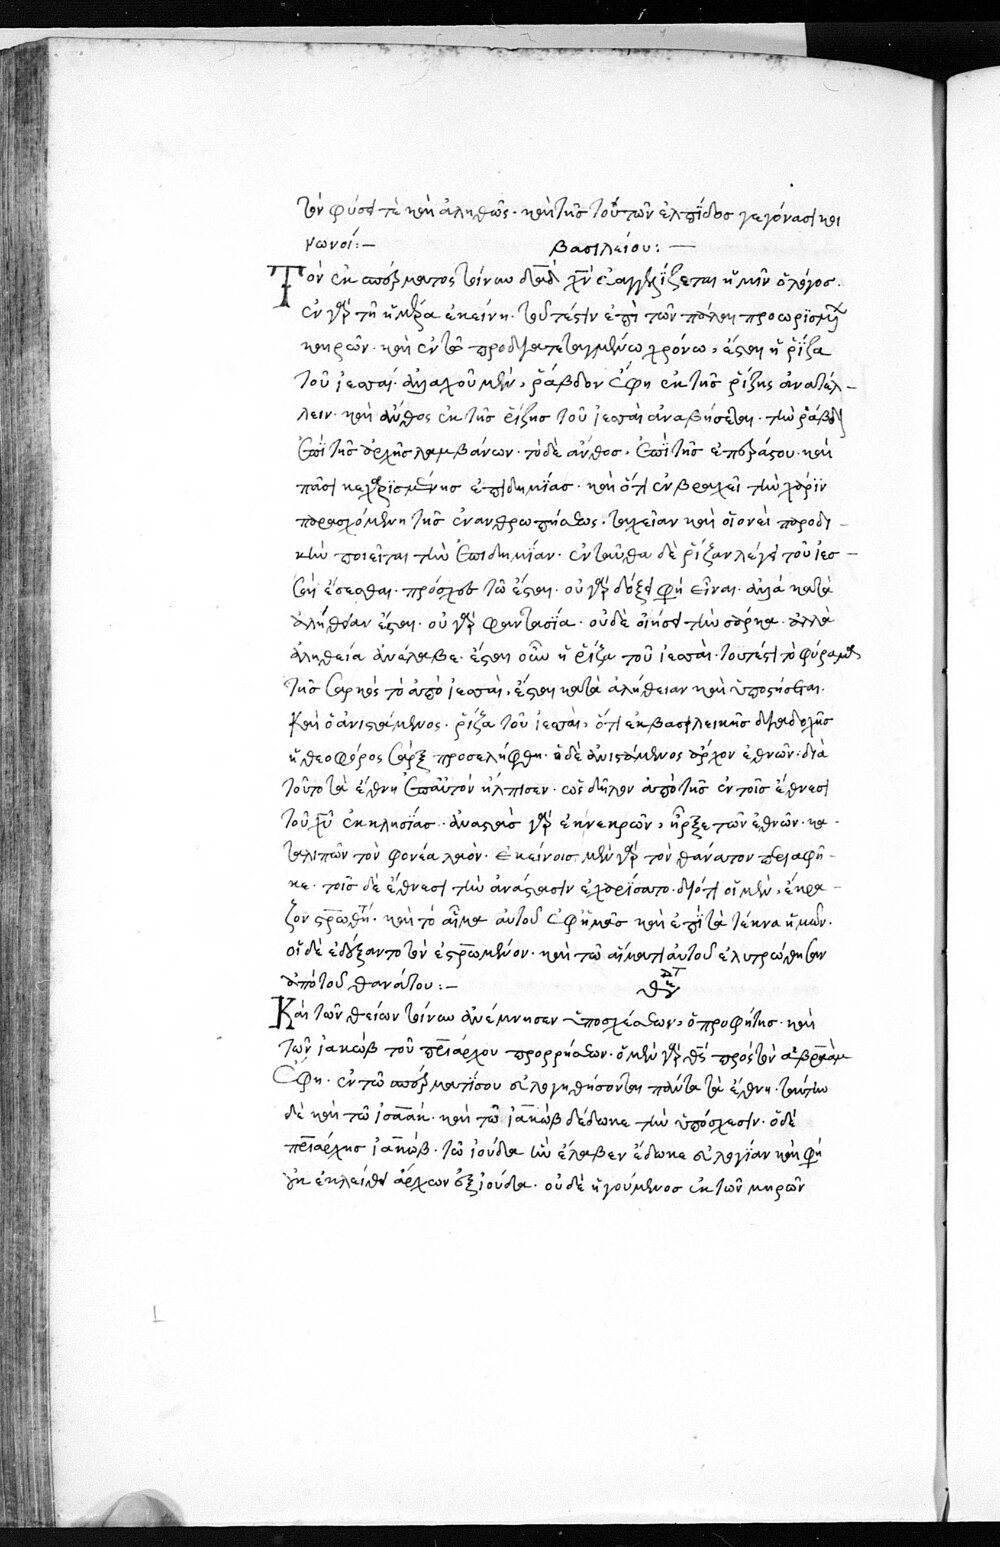 τὸν φύσει τὲ καὶ ἀληθῶς· καὶ τῆς τούτων ἐλπΐδος γεγόνασι κοι
νωνοί:— βασιλείου:—
Τὸν ἐκ σπέρματος τοίνυν δᾱδ χ̄ν εὐαγγελίζεται ἡμῖν ὁ λόγος.
ἐν γὰρ τῆ ἡμέρα ἐκείνη· τουτέστιν ἐπὶ τῶν πάλαι προωρϊσμένων
καιρῶν· καὶ ἐν τῶ προδιατεταγμένω χρόνω, ἔσται ἡ ῥίζα
τοῦ ἰεσσαί· ἀλλαχοῦ μὲν, ῥάβδον ἔφη ἐκ τῆς ῥίζης ἀνατέλ-
λειν· καὶ ἄνθος ἐκ τῆς ῥίζης τοῦ ἰεσσαὶ ἀναβήσεται· τὴν ῥάβδον
ἐπῒ τῆς ἀρχῆς λαμβάνων· τὸ δὲ ἄνθος, ἐπῒ τῆς καὶ
πᾶσι κεχαρισμένης ἐπιδημΐας· καὶ ὅτι ἐν βραχεῖ τὴν χάρϊν
παρασχόμενη τῆς ἐνανθρωπήσεως, ταχεῖαν καὶ οἱονεὶ παροδι-
κὴν ποιεῖται τὴν ἐπιδημΐαν· ἐνταῦθα δὲ ῥίζαν λέγει τοῦ ἰεσ-
σαὶ ἔσεσθαι· πρόσχες τῶ ἔσται· οὐ γὰρ δόξει φησὶ εἶναι· ἀλλὰ κατὰ
ἀλήθειαν ἔσται· οὐ γὰρ φαντασία· οὐδὲ οἰήσει τὴν σάρκα· ἀλλὰ
ἀληθεία ἀνέλαβε· ἔσται οὖν ἡ ῥίζα τοῦ ἰεσσαὶ· τουτέστι τὸ φύραμα
τῆς σαρκὸς τὸ ἀπὸ ἰεσσαὶ, ἔσται κατὰ ἀλήθειαν καὶ ὑποστήσεται.
Καὶ ὁ ἀνιστάμενος· ῥίζα τοῦ ἰεσσαὶ, ὅτι ἐκ βασιλεικῆς διαδοχῆς
ἡ θεοφόρος σὰρξ προσελήφθη· ὁ δὲ ἀνιστάμενος ἄρχον ἐθνῶν· διὰ
τοῦτο τὰ ἔθνη ἐπ αὐτὸν ἤλπισεν· ὡς δῆλον ἀπὸ τῆς ἐν τοῖς ἔθνεσι
τοῦ χ̄υ ἐκκλησΐας· ἀναστὰς γὰρ ἐκ νεκρῶν, ἦρξε τῶν ἐθνῶν· κα-
ταλιπὼν τὸν φονέα λαόν· ἐκείνοις μὲν γὰρ τὸν θάνατον περιαφῆ-
κε· τοῖς δὲ ἔθνεσι τὴν ἀνάστασιν ἐχαρίσατο· διότι οἱ μὲν, ἔκρα-
ζον σ̄ρωθήτω· καὶ τὸ αἷμα αὐτοῦ ἐφ ἡμᾶς καὶ ἐπῒ τὰ τέκνα ἡμῶν.
οἱ δὲ ἐδέξαντο τὸν ἐσ̄ρωμένον· καὶ τῶ αἵματι αὐτοῦ ἐλυτρώθησαν
ἀπὸ τοῦ θανάτου:—
Καὶ τῶν θείων τοίνυν ἀνέμνησεν ὑποσχέσεων, ὁ προφήτης· καὶ
τῶν ἰακὼβ τοῦ π̄ριάρχου προρρήσεων· ὁ μὲν γὰρ θ̄ς πρὸς τὸν ἀβραὰμ
ἔφη· ἐν τῶ σπέρματί σου εὐλογηθήσονται πάντα τὰ ἔθνη· ταύτην
δὲ καὶ τῶ ἰσαὰκ· καὶ τῶ ἰακὼβ δέδωκε τὴν ὑπόσχεσιν· ὁ δὲ
π̄ριάρχης ἰακὼβ· τῶ ἰούδα ἣν ἔλαβεν ἔδωκε εὐλογίαν καὶ φησὶ
οὐκ ἐκλείψει ἄρχων ἐξ ἰούδα· οὐδὲ ἡγούμενος ἐκ τῶν μηρῶν